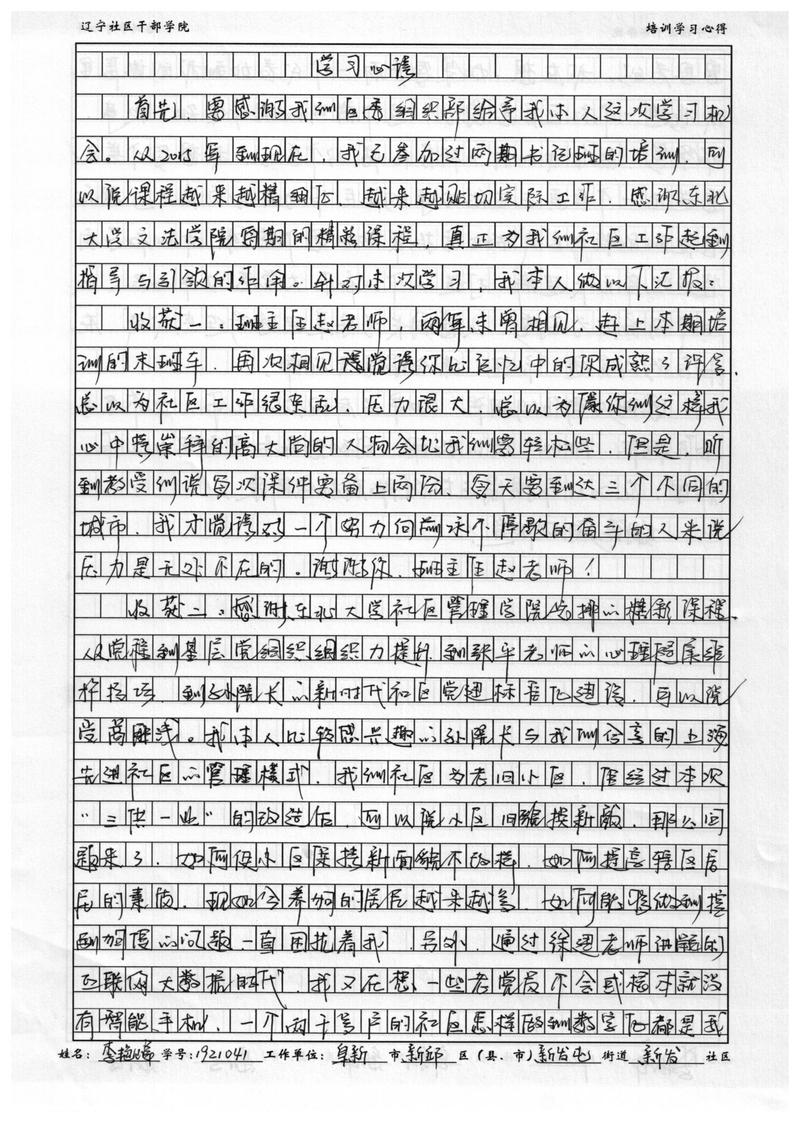 辽宁社区干部学院 培训学习心得
学习心得
首先，要感谢我们区委组织部给予我本人这次学习机
会。从2015年到现在，我已参加过两期书记班的培训，可
以说课程越来越精细化，越来越贴切实际工作，感谢东北
大学文法学院两期的精彩课程，真正为我们社区工作起到
指导与引领的作用。针对本次学习，我本人做以下汇报：
收获一：班主任赵老师，两年未曾相见，赶上本期培
训的末班车，再次相见觉得你比记忆中的你成熟了许多，
总以为社区工作很杂乱，压力很大，总以为像你们这样我
心中崇拜的高大尚的人物会比我们要轻松些，但是，听
到教授们说每次课件要备上两份，每天要到达三个不同的
城市，我才觉得对一个努力向前永不停歇的奋斗的人来说
压力是无处不在的。谢谢你，班主任赵老师！
收获二：感谢东北大学社区管理学院安排的精彩课程，
从党程到基层党组织组织力提升，到张平老师的心理健康维
护技巧，到孙院长的新时代社区党建标准化建设，可以说
受益匪浅。我本人比较感兴趣的孙院长与我们分享的上海
先进社区的管理模式，我们社区为老旧小区，但经过本次
“三供一业”的改造后，可以说小区旧貌换新颜，那么问
题来了，如何使小区保持新面貌不改样，如何提高辖区居
民的素质，现如今养狗的居民越来越多，如何能够做到控
制狗患的问题一直困扰着我，另外，通过徐建老师讲解的
互联网大数据时代，我又在想，一些老党员不会或根本就没
有智能手机，一个两千多户的社区怎样做到数字化都是我
姓名： 学号：1921041 工作单位：阜新 市 新邱 区（县、市）新发屯 街道 新发 社区